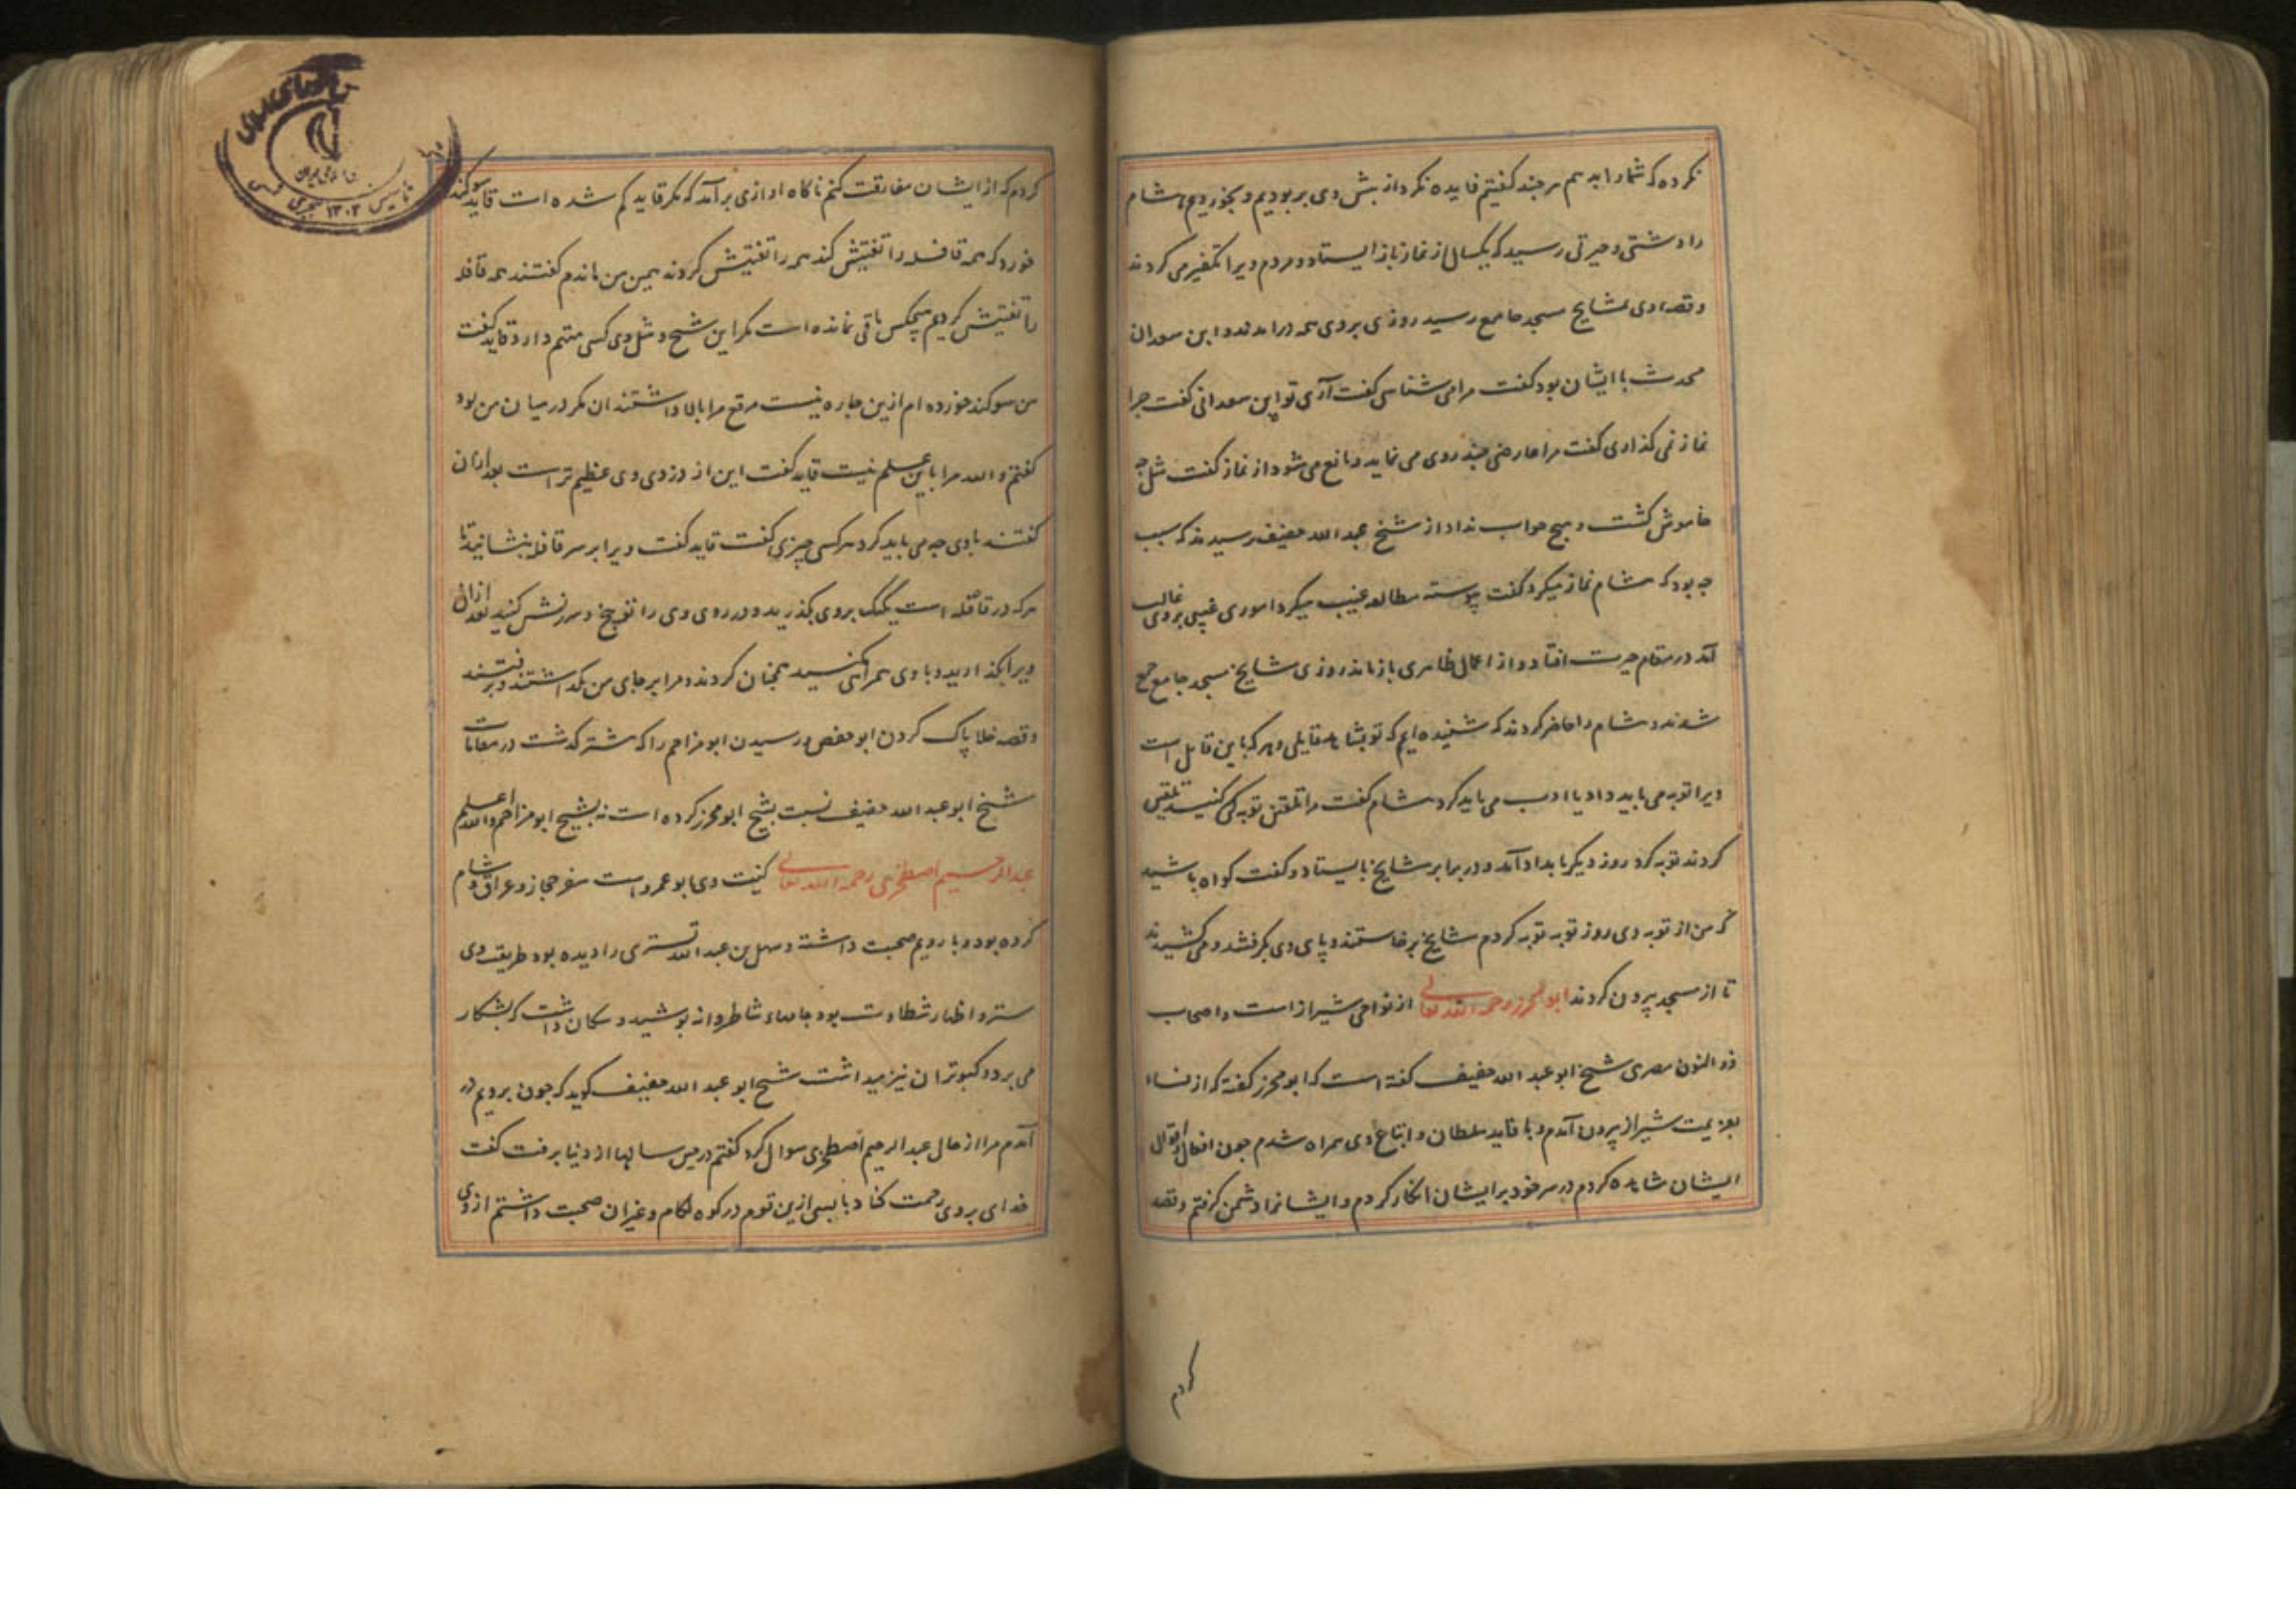 نکرده که شما را بدهم هر چند کفتیم فایده نکرد از پیش وی بربودیم و بخوردیم هشام
را دهشتی و حیرتی رسید که یکسال از نماز باز ایستاد و مردم ویرا تکفیر می کردند
و قصه وی بمشایخ مسجد جامع رسید روزی بر وی همه درامدند و ابن سعدان
محدث با ایشان بود کفت مرا می شناسی کفت آری تو ابن سعدانی کفت چرا
نماز نمی کذاری کفت مرا عارضی چند روی می نماید و مانع می شود از نماز کفت مثل چه
خاموش کشت و هیچ جواب نداد از شیخ عبد الله خفیف پرسیدند که سبب
چه بود که هشام نماز نمیکرد کفت پیوسته مطالعه غیب میکرد اموری غیبی بر وی غالب
آمد در مقام حیرت افتاد و از اعمال ظاهری باز ماند روزی مشایخ مسجد جامع جمع
شدند و هشام را حاضر کردند که شنیده ایم که تو بمشاهده قایلی و هر که باین قایل است
ویرا توبه می باید داد یا ادب می باید کرد هشام کفت مرا تلقین توبه کنید تلقین
کردند توبه کرد روز دیکر بامداد آمد و در برابر مشایخ بایستاد و کفت کواه باشید
که من از توبه دی روز توبه توبه کردم مشایخ برخاستند و پای وی بکرفتند و می کشیدند
تا از مسجد بیرون کردند ابو محرز رحمه الله تعالی از نواحی شیراز است و اصحاب
ذو النون مصری شیخ ابو عبد الله خفیف کفته است که ابو محرز کفته که از نسا
بعزیمت شیراز بیرون آمدم و با قاید سلطان و اتباع وی همراه شدم چون افعال و اقوال
ایشان مشاهده کردم در سر خود بر ایشان انکار کردم و ایشانرا دشمن کرفتم و قصد
کردم
کردم که از ایشان مفارقت کنم ناکاه اوازی برآمد که مکر قاید کم شده است قاید سوکند
خورد که همه قافله را تفتیش کنند همه را تفتیش کردند همین من ماندم کفتند همه قافله
را تفتیش کردیم هیچکس باقی نمانده است مکر این شیخ و مثل وی کسی متهم دارد قاید کفت
من سوکند خورده ام ازین چاره نیست مرقع مرا بالا داشتند ان مکر در میان من بود
کفتم و الله مرا باین علم نیست قاید کفت این از دزدی وی عظیم تر است بعد ازان
کفتند با وی چه می باید کرد هر کسی چیزی کفت قاید کفت ویرا بر سر قافله بنشانید تا
هر که در قافله است یکیک بر وی بکذرید و در روی وی را توبیخ و سرزنش کنید بعد ازان
ویرا بکذارید و با وی همراهی نکنید همچنان کردند و مرا بر جای من بکذاشتند و برفتند
و قصه خلا پاک کردن ابو حفص و رسیدن ابو مزاحم را که پیشتر کذشت در مقامات
شیخ ابو عبد الله خفیف نسبت بشیخ ابو محرز کرده است نه بشیخ ابو مزاحم و الله اعلم
عبد الرحیم اصطخری رحمه الله تعالی کنیت وی ابو عمرو است سفر حجاز و عراق و شام
کرده بود و با رویم صحبت داشته و سهل بن عبد الله تستری را دیده بود طریقت وی
ستر و اظهار شطارت بود جامهاء شاطروانه پوشید و سکان داشت که بشکار
می برد و کبوتران نیز میداشت شیخ ابو عبد الله خفیف کوید که چون بر رویم در
آمدم مرا از حال عبد الرحیم اصطخری سوال کرد کفتم درین سالها از دنیا برفت کفت
خدای بر وی رحمت کناد با بسی ازین قوم در کوه لکام و غیر ان صحبت داشتم از وی
تاسیس ۱۳۰۲ هجری